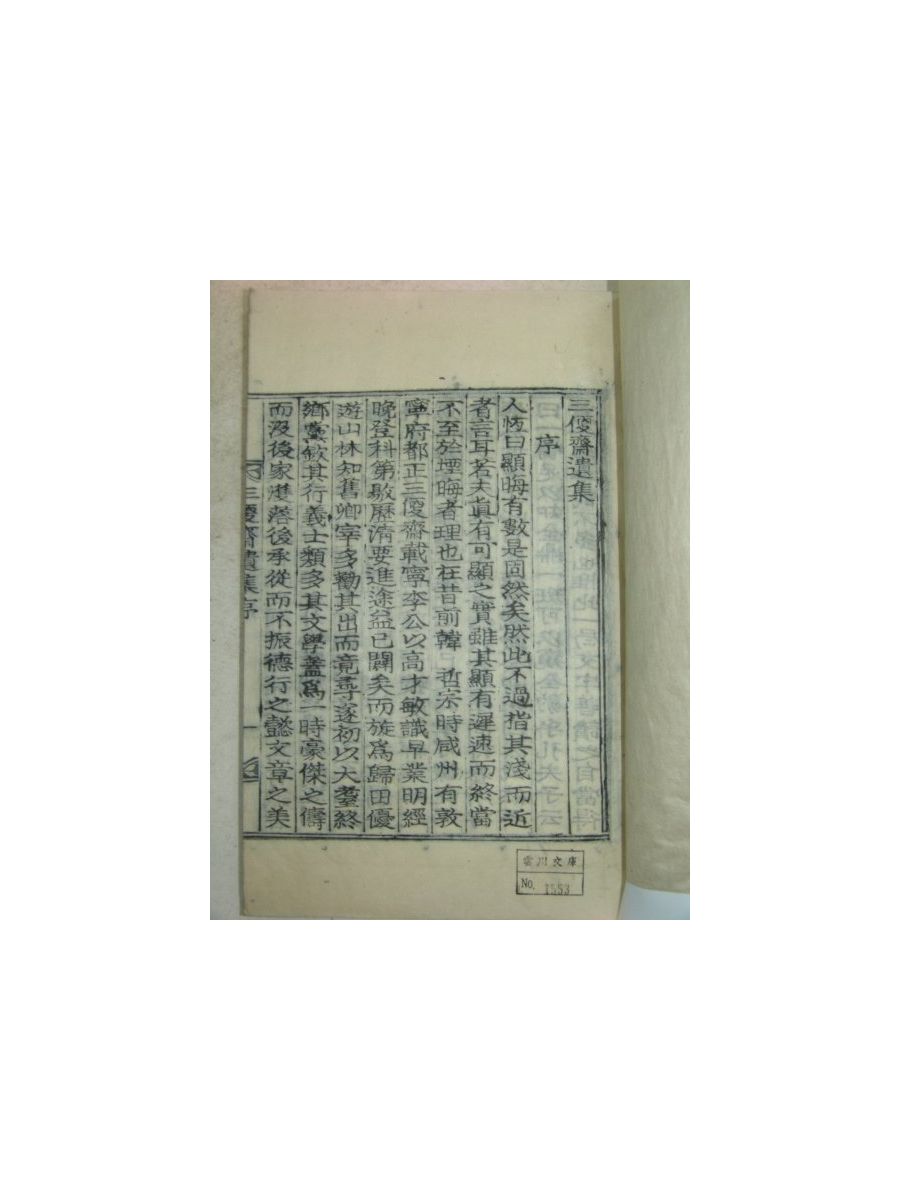 三優齋遺集
序
人恆曰顯晦有數是固然矣然此不過指其淺而近
者言耳若夫眞有可顯之實雖其顯有遲速而終當
不至於堙晦者理也在昔前韓 哲宗時咸州有敦
寧府都正三優齋載寧李公以高才敏識早業明經
晩登科第敭歷淸要進途益已闢矣而旋爲歸田優
遊山林知舊卿宰多勸其出而竟尋遂初以大耋終
鄕黨欽其行義士類多其文學蓋爲一時豪傑之儔
而沒後家燬落後承從而不振德行之懿文章之美
三優齋遺集序 一
雲川文庫
No. 1553